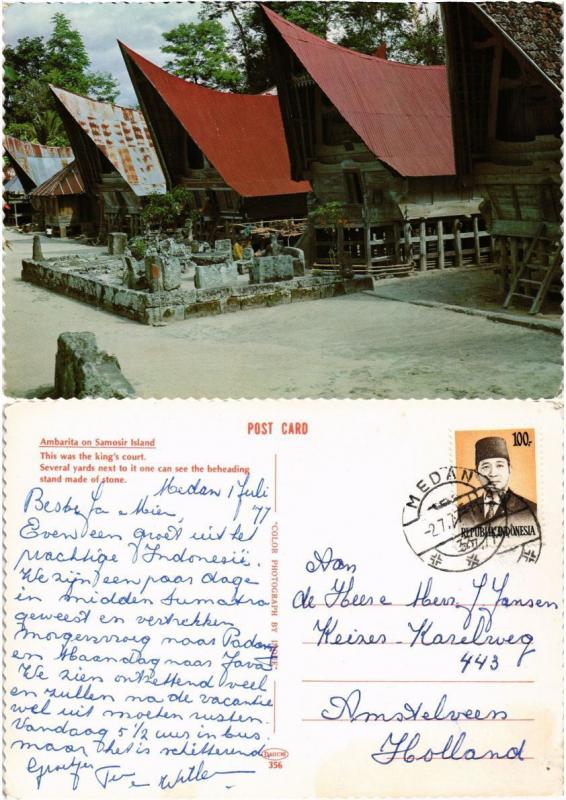 POST CARD
Ambarita on Samosir Island
This was the king's court.
Several yards next to it one can see the beheading
stand made of stone.
Medan 1 Juli
77
Beste Jo & Mien,
Even een groet uit het
prachtige Indonesië.
We zijn een paar dage
in midden Sumatra
geweest en vertrekken
morgenvroeg naar Padang
en Maandag naar Java.
We zien ontzettend veel
en zullen na de vacantie
wel uit moeten rusten.
Vandaag 5½ uur in bus.
maar het is schitterend
Groetjes
COLOR PHOTOGRAPH BY
356
MEDAN
-2.7.77
100,-
REPUBLIK INDONESIA
Aan
de Heer e Mevr. J. Jansen
Keizer-Karelweg
443
Amstelveen
Holland